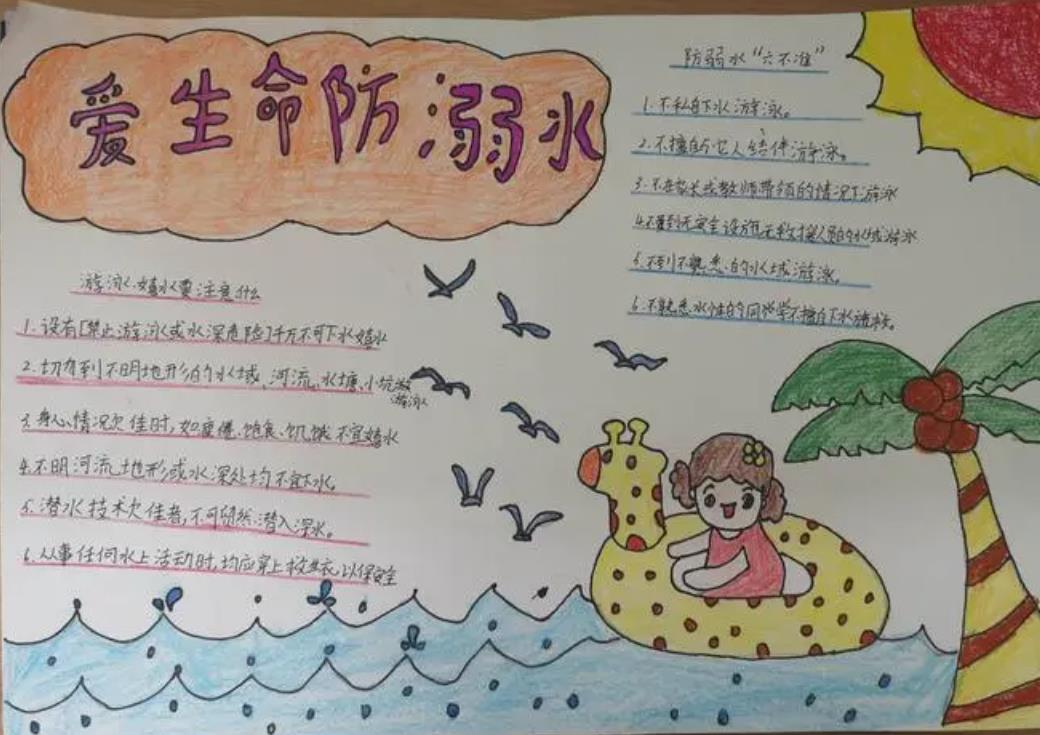 爱生命防溺水
游泳、嬉水要注意什么
1.设有[禁止游泳或水深危险]千万不可下水嬉水
2.切勿到不明地形的水域、河流、水塘、小坑游
游泳
3.身心、情况欠佳时,如疲倦、饱食、饥饿不宜嬉水
4.不明河流地形或水深处均不宜下水。
5.潜水技术欠佳者,不可贸然潜入深水。
6.从事任何水上活动时,均应穿上救生衣,以保安全
防弱水“六不准”
1.不私自下水游泳。
2.不擅自与它人结伴游泳。
3.不在家长或教师带领的情况下游泳
4.不到无安全设施无救援人员的水域游泳
5.不到不熟悉的水域游泳。
6.不熟悉水性的同学不擅自下水施救。